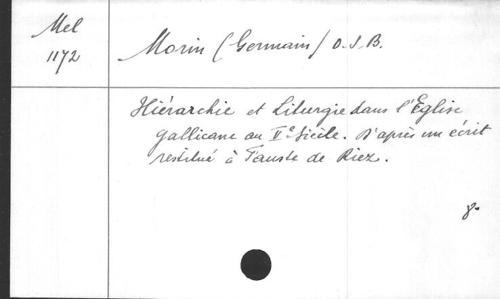 Mel
1172
Morin (Germain) O.S.B.
Hiérarchie et Liturgie dans l'Eglise
gallicane au Ve siècle. D'après un écrit
restitué à Fauste de Riez.
8°